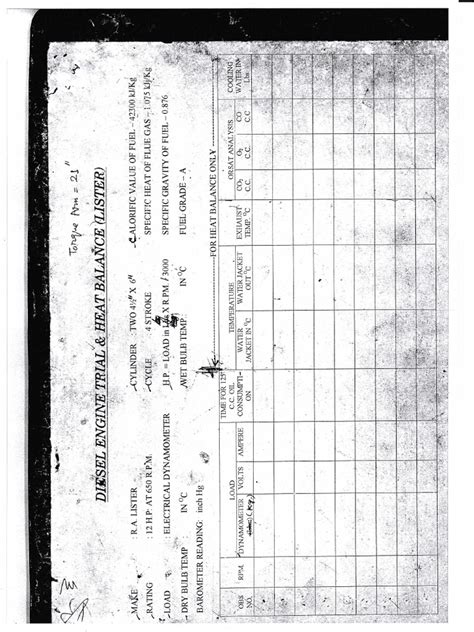 Torque Arm = 21"
DIESEL ENGINE TRIAL & HEAT BALANCE (LISTER)
MAKE : R.A. LISTER CYLINDER : TWO 4½" X 6" CALORIFIC VALUE OF FUEL – 42300 kJ/Kg
RATING : 12 H.P. AT 650 R.P.M. CYCLE : 4 STROKE SPECIFIC HEAT OF FLUE GAS – 1.075 kJ/Kg
LOAD : ELECTRICAL DYNAMOMETER H.P. = LOAD in X R.P.M. /3000 SPECIFIC GRAVITY OF FUEL – 0.876
DRY BULB TEMP : IN °C WET BULB TEMP : IN °C FUEL GRADE – A
BAROMETER READING: inch Hg
FOR HEAT BALANCE ONLY
OBS NO. RPM LOAD TIME FOR 125 C.C. OIL CONSUMPTI-ON TEMPERATURE ORSAT ANALYSIS COOLING WATER IN Lbs
DYNAMOMETER VOLTS AMPERE WATER JACKET IN °C WATER JACKET OUT °C EXHAUST TEMP. °C CO₂ C.C. O₂ C.C. CO C.C.